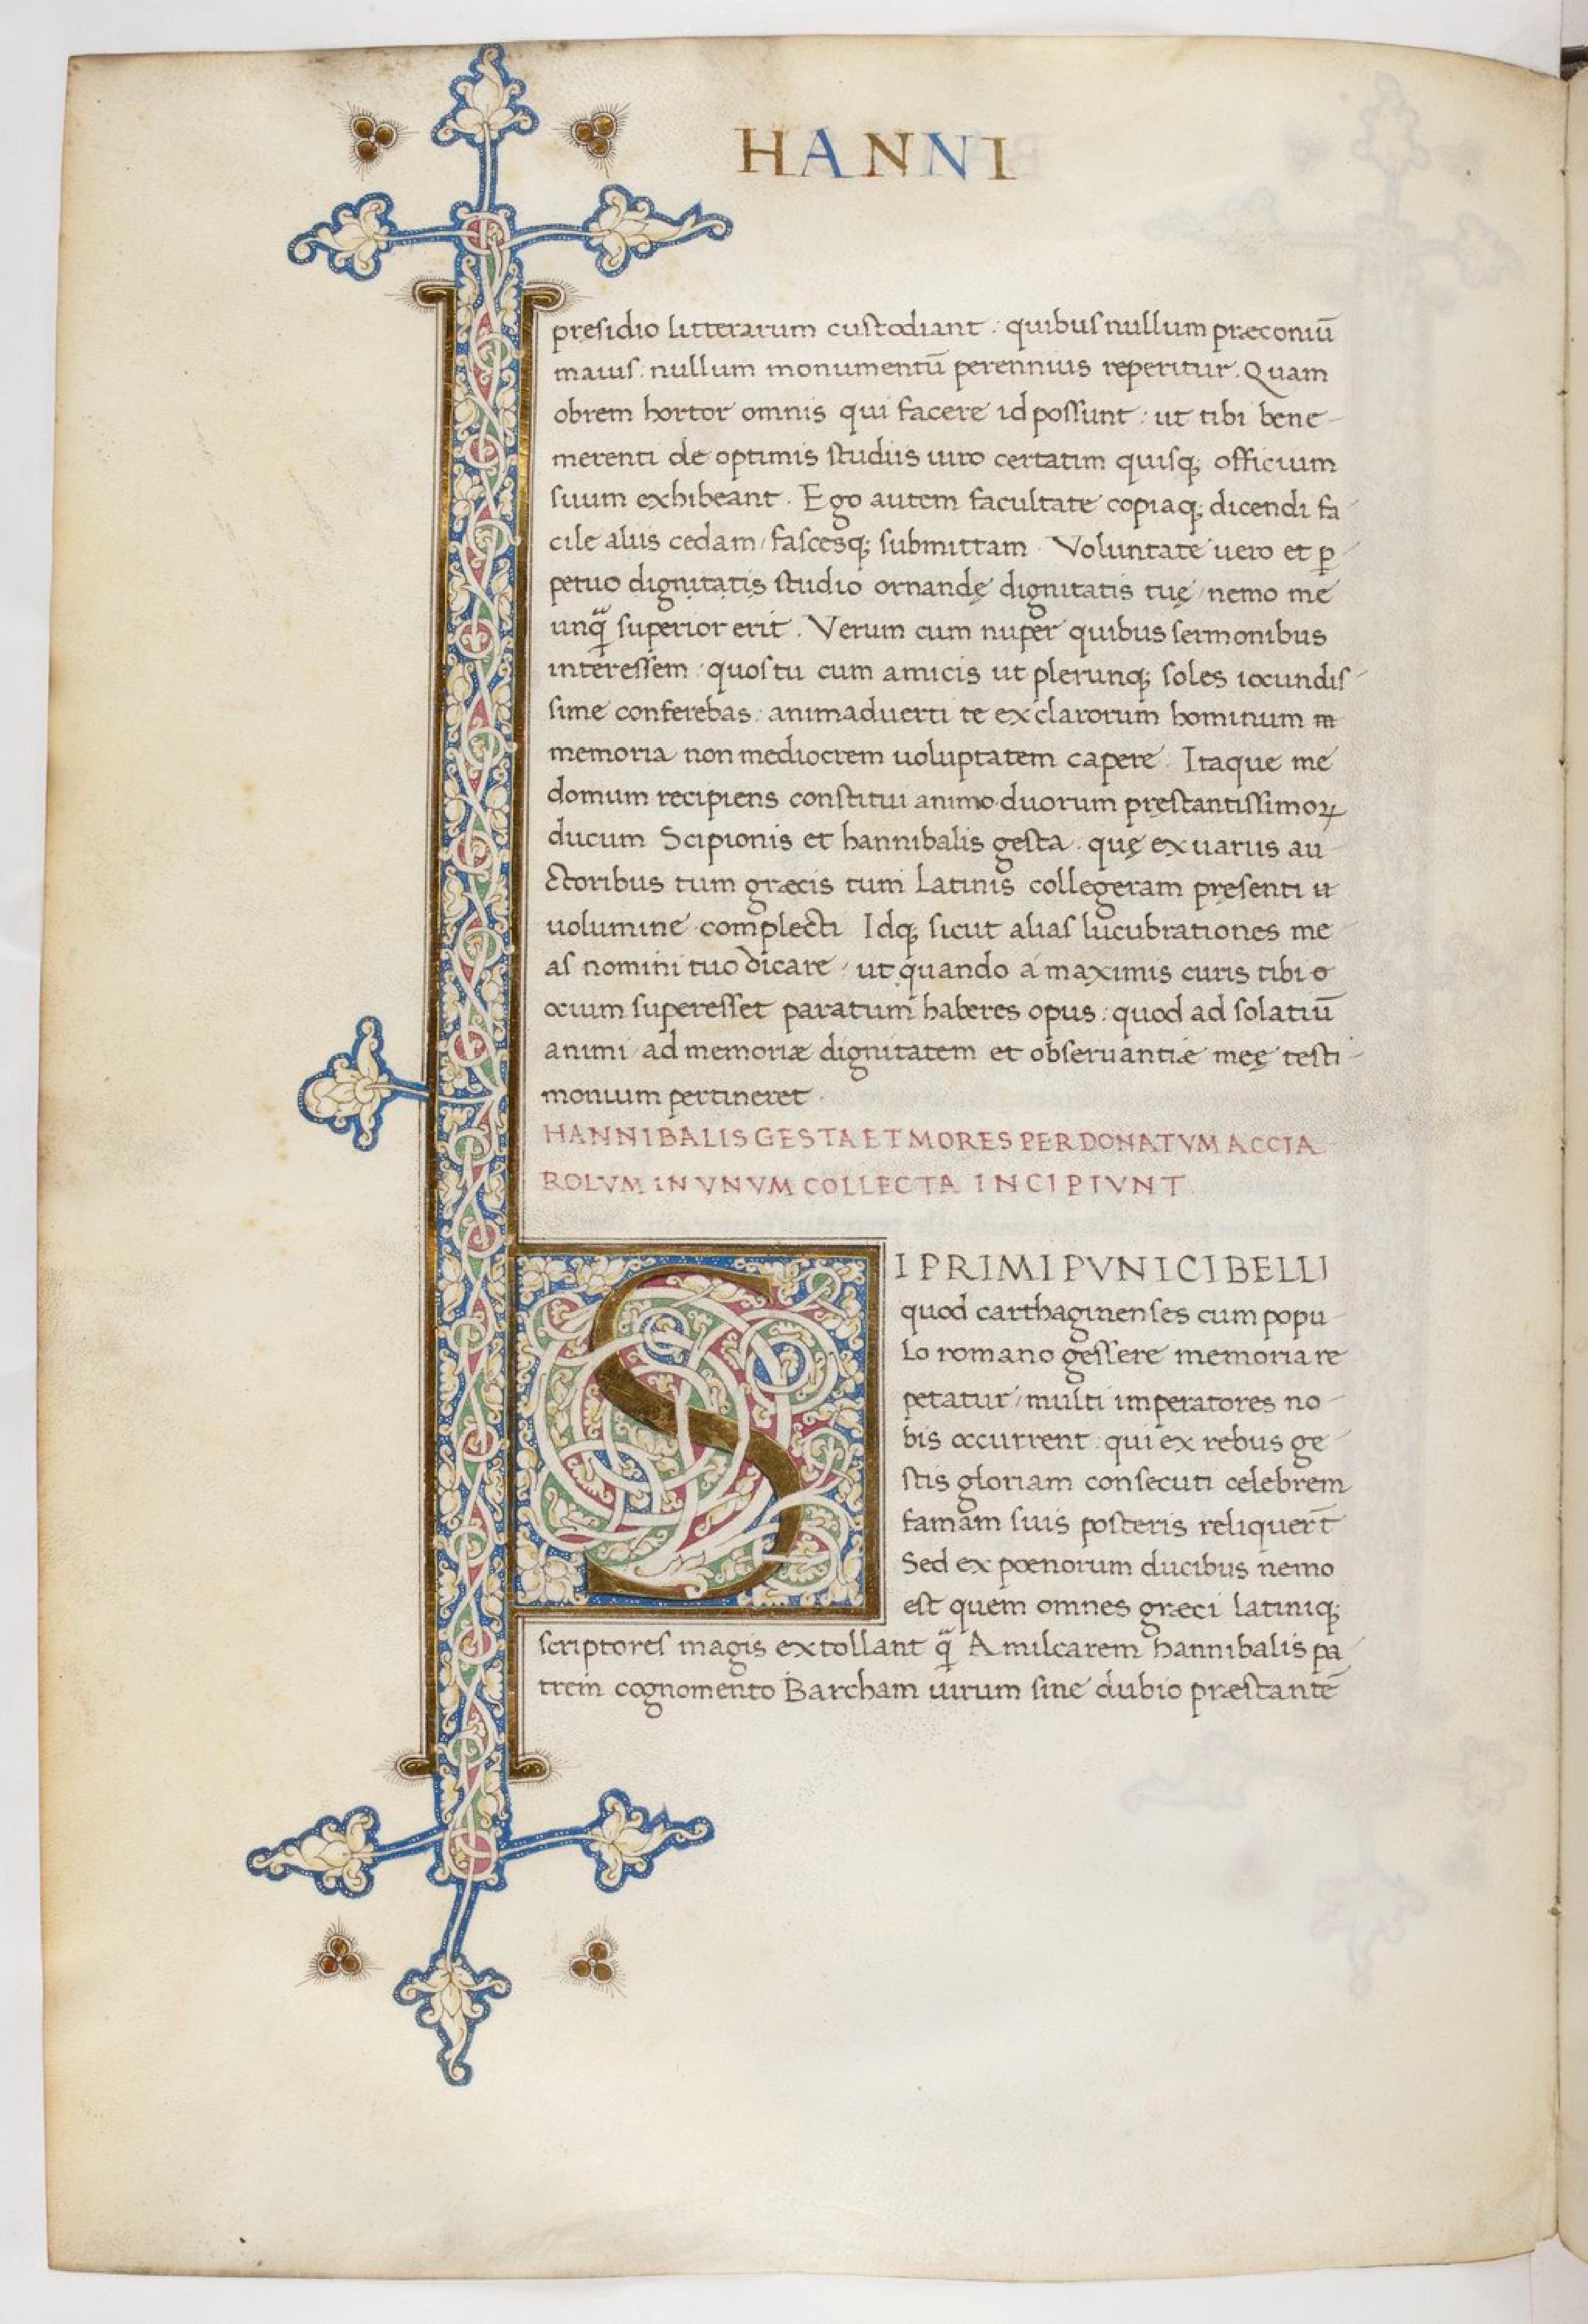 HANNI
presidio litterarum custodiant : quibus nullum præconiū
maius : nullum monumentū perennius reperitur . Quam
obrem hortor omnis qui facere id possunt : ut tibi bene-
merenti de optimis studiis uiro certatim quisq; officium
suum exhibeant . Ego autem facultate copiaq; dicendi fa-
cile aliis cedam / fascesq; submittam . Voluntate uero et ꝑ-
petuo dignitatis studio ornandę dignitatis tuę / nemo me
unq̃ superior erit . Verum cum nuper quibus sermonibus
interessem : quos tu cum amicis ut plerunq; soles iocundis-
sime conferebas : animaduerti te ex clarorum hominum m
memoria non mediocrem uoluptatem capere . Itaque me
domum recipiens constitui animo duorum pręstantissimoꝝ
ducum Scipionis et hannibalis gesta . quę ex uariis au-
ctoribus tum græcis tum Latinis collegeram pręsenti u
uolumine complecti Idq; sicut alias lucubrationes me-
as nomini tuo dicare / ut quando á maximis curis tibi o
ocium superesset paratum haberes opus : quod ad solatiū
animi ad memoriæ dignitatem et obseruantiæ meę testi-
monium pertineret .
HANNIBALIS GESTA ET MORES PER DONATVM ACCIA
ROLVM IN VNVM COLLECTA INCIPIVNT
SI PRIMI PVNICI BELLI
quod carthaginenses cum popu-
Lo romano gessere memoria re
petatur / multi imperatores no-
bis occurrent : qui ex rebus ge-
stis gloriam consecuti celebrem
famam suis posteris reliquer̄t
Sed ex poenorum ducibus nemo
est quem omnes græci latiniq;
scriptores magis extollant q̃ Amilcarem hannibalis pa-
trem cognomento Barcham uirum sine dubio præstantē